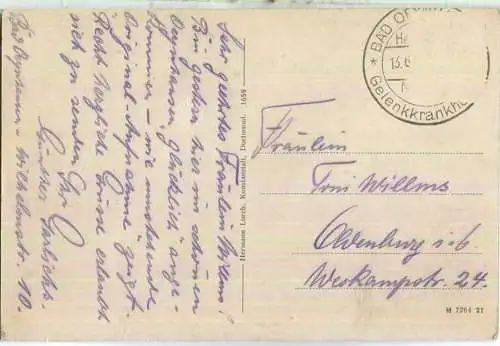 Sehr geehrtes Fräulein Willms!
Bin gestern hier im schönen
Oeynhausen glücklich ange-
kommen – wie umstehende
Original-Aufnahme zeigt.
Recht herzliche Grüsse erlaubt
sich zu senden Ihr
Günther
Bad Oeynhausen – Wilhelmstr. 10.
Hermann Lorch, Kunstanstalt, Dortmund. 1659
* BAD OEYN
13.6
Gelenkkrankh
Fräulein
Toni Willms
Oldenburg i/O.
Weskampstr. 24.
M 7264 21